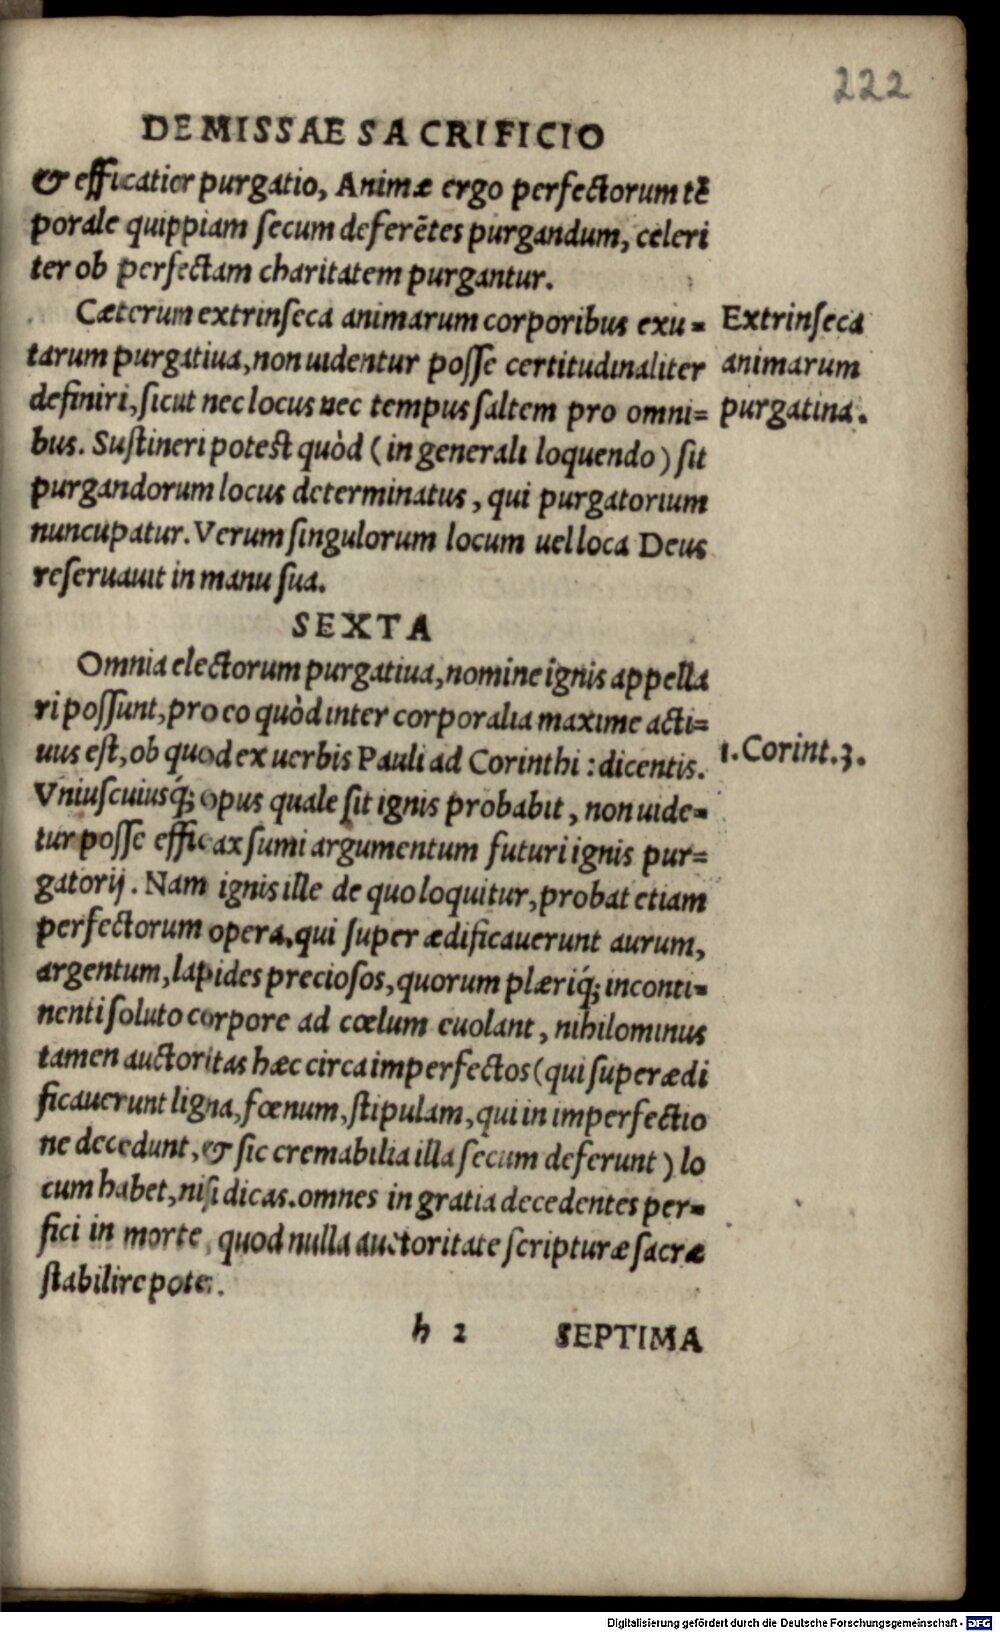 222
DE MISSAE SACRIFICIO
& efficatior purgatio, Animæ ergo perfectorum tē
porale quippiam secum deferētes purgandum, celeri
ter ob perfectam charitatem purgantur.
Cæterum extrinseca animarum corporibus exu=
tarum purgatiua, non uidentur posse certitudinaliter
definiri, sicut nec locus nec tempus saltem pro omni=
bus. Sustineri potest quòd (in generali loquendo) sit
purgandorum locus determinatus, qui purgatorium
nuncupatur. Verum singulorum locum uel loca Deus
reseruauit in manu sua.
Extrinseca
animarum
purgatina.
SEXTA
Omnia electorum purgatiua, nomine ignis appella
ri possunt, pro eo quòd inter corporalia maxime acti=
uus est, ob quod ex uerbis Pauli ad Corinthi: dicentis.
Vniuscuiusq́; opus quale sit ignis probabit, non uide=
tur posse efficax sumi argumentum futuri ignis pur=
gatorij. Nam ignis ille de quo loquitur, probat etiam
perfectorum opera, qui super ædificauerunt aurum,
argentum, lapides preciosos, quorum plæriq́; inconti=
nenti soluto corpore ad cœlum euolant, nihilominus
tamen auctoritas hæc circa imperfectos (qui superædi
ficauerunt ligna, fœnum, stipulam, qui in imperfectio
ne decedunt, & sic cremabilia illa secum deferunt) lo
cum habet, nisi dicas. omnes in gratia decedentes per=
fici in morte, quod nulla auctoritate scripturæ sacræ
stabilire pote.
1. Corint. 3.
h 2 SEPTIMA
Digitalisierung gefördert durch die Deutsche Forschungsgemeinschaft - DFG